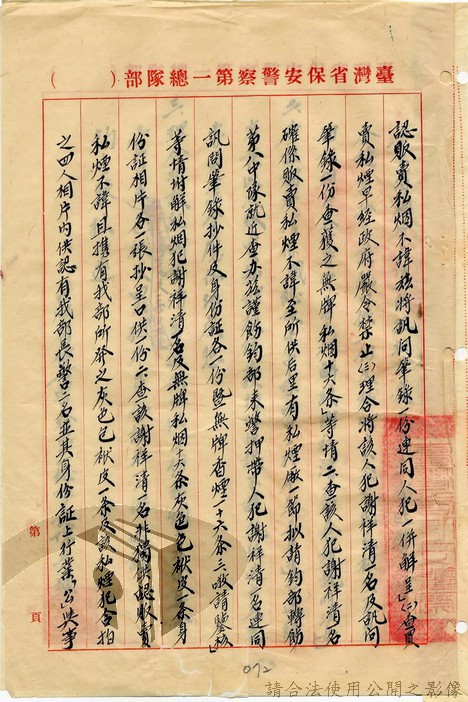 臺灣省保安警察第一總隊部（　　）
認販賣私烟不諱茲將訊问筆錄一份連同人犯一併解呈」㈡查買
賣私煙早經政府嚴令禁止㈢理合將該人犯謝祥清一名及訊问
筆錄一份查獲之無牌私烟十六条」等情二查該人犯謝祥清名
確係販賣私煙不諱至所供后里有私煙廠一節拟請鈞部轉飭
第八中隊就近查办茲謹飭鈞部來警押帶人犯謝祥清一名連同
訊问筆錄抄件及身份証各一份暨無牌香煙十六条三敬請鑒核」
等情附解私烟犯謝祥清一名及無牌私烟十六条灰色包袱皮一条身
份証相片各一張抄呈口供一份六查該謝祥清一名非獨供認販賣
私煙不諱且携有我部所發之灰色包袱皮一条及該私煙犯合拍
之四人相片内供認有我部長警二名並其身份証上行業「公」與事
第　頁
072
請合法使用公開之影像